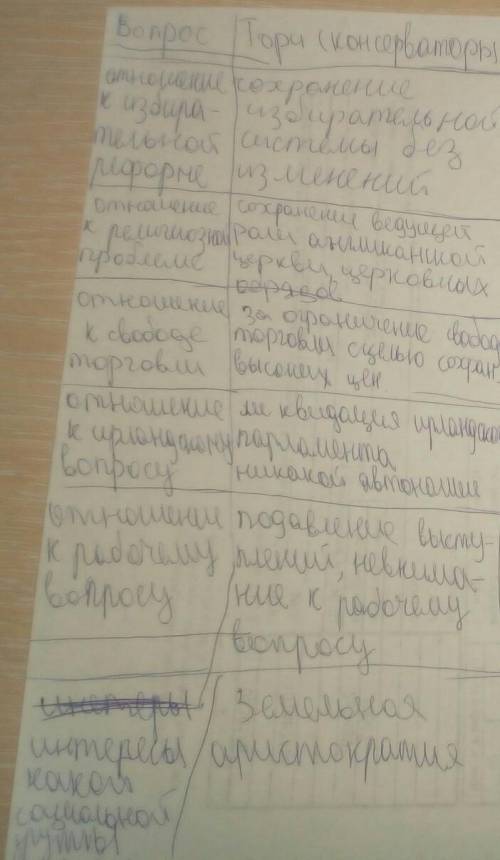 Вопрос | Тори (консерваторы)
отношение | сохранение
к избира- | избирательной
тельной | системы без
реформе | изменений
отношение | сохранение ведущей
к религиозной | роли англиканской
проблеме | церкви, церковных
обрядов
отношение | за ограничение свобод
к свободе | торговли с целью сохран
торговли | высоких цен
отношение | ликвидация ирландско
к ирландскому | парламента
вопросу | никакой автономии
отношение | подавление высту-
к рабочему | плений, невнима-
вопросу | ние к рабочему
вопросу
интересы | Земельная
интересы | аристократия
какой
социальной
группы